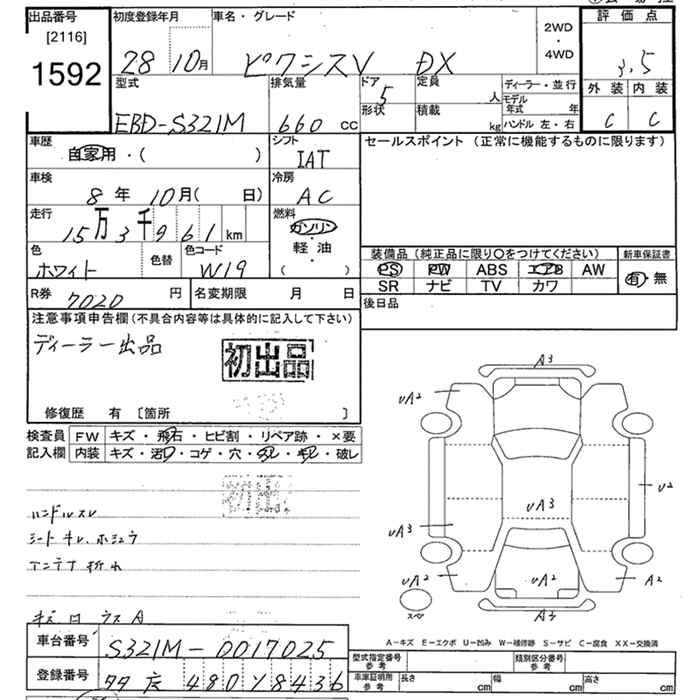 出品番号
[2116]
1592
初度登録年月
28 10月
車名・グレード
ピクシスV DX
2WD
・
4WD
評価点
3.5
外装 内装
C C
型式
EBD-S321M
排気量
660 cc
ドア 5
形状
定員 人
積載 kg
ディーラー・並行
モデル年式 年
ハンドル 左・右
車歴
自家用・( )
シフト
IAT
セールスポイント(正常に機能するものに限ります)
車検
8年 10月( 日)
冷房
AC
走行
15万3千961km
燃料
ガソリン
・
軽・油
( )
色
ホワイト
色替
色コード
W19
装備品(純正品に限り〇をつけてください)
新車保証書
PS PW ABS エアB AW
有・無
SR ナビ TV カワ
R券
7020 円
名変期限 月 日
後日品
注意事項申告欄(不具合内容等は具体的に記入して下さい)
ディーラー出品
初出品
修復歴 有 〔箇所 〕
検査員
記入欄
FW キズ・飛石・ヒビ割・リペア跡・×要
内装 キズ・汚レ・コゲ・穴・スレ・キレ・破レ
初出
ハンドルスレ
シートキレ、ホシュウ
アンテナ折れ
A3
UA2
U2
UA3
UA3
UA2
UA2
A2
スペア
A3
A-キズ E-エクボ U-凹み W-補修跡 S-サビ C-腐食 XX-交換済
車台番号
S321M-0017025
登録番号
480 Y8436
型式指定番号
参考
類別区分番号
参考
車庫証明所
参考
長さ cm
幅 cm
高さ cm